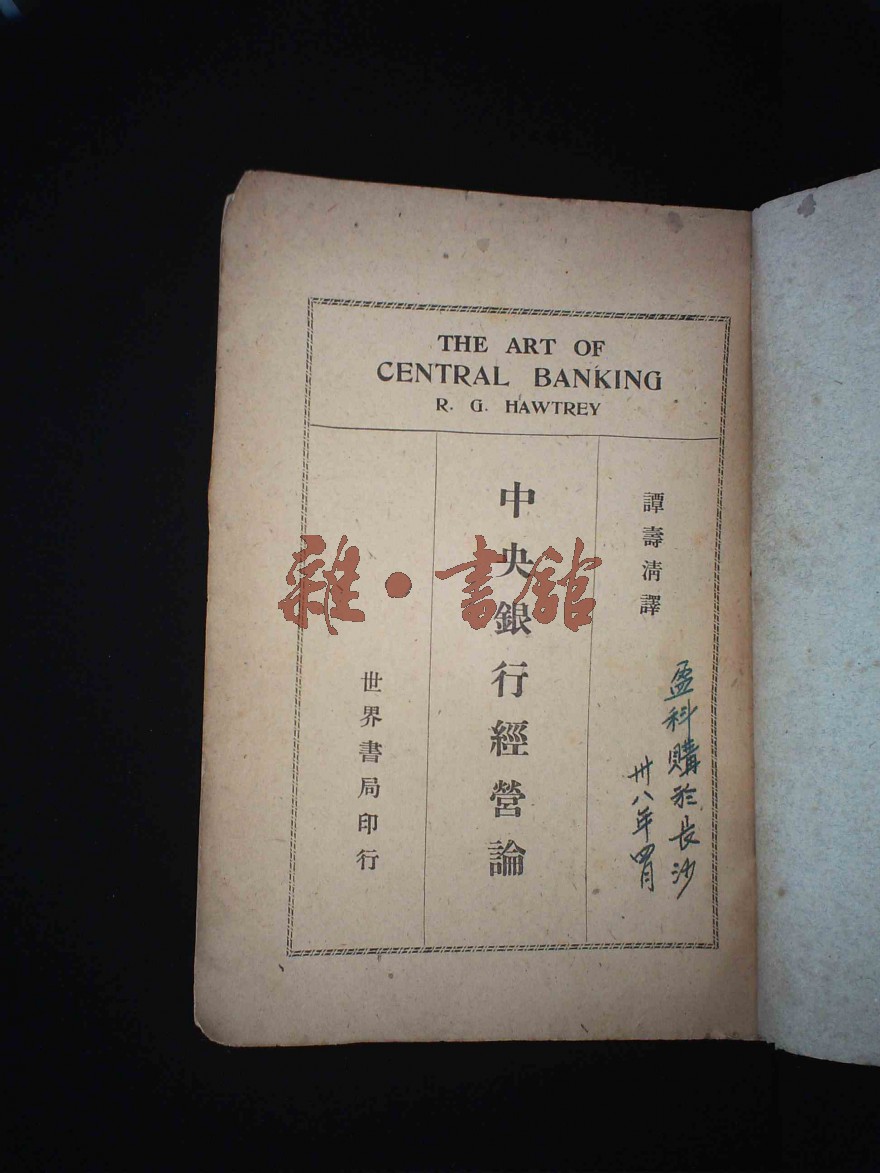 THE ART OF
CENTRAL BANKING
R. G. HAWTREY
譚壽淸譯
中央銀行經營論
世界書局印行
盈科購於長沙
卅八年四月
雜·書館